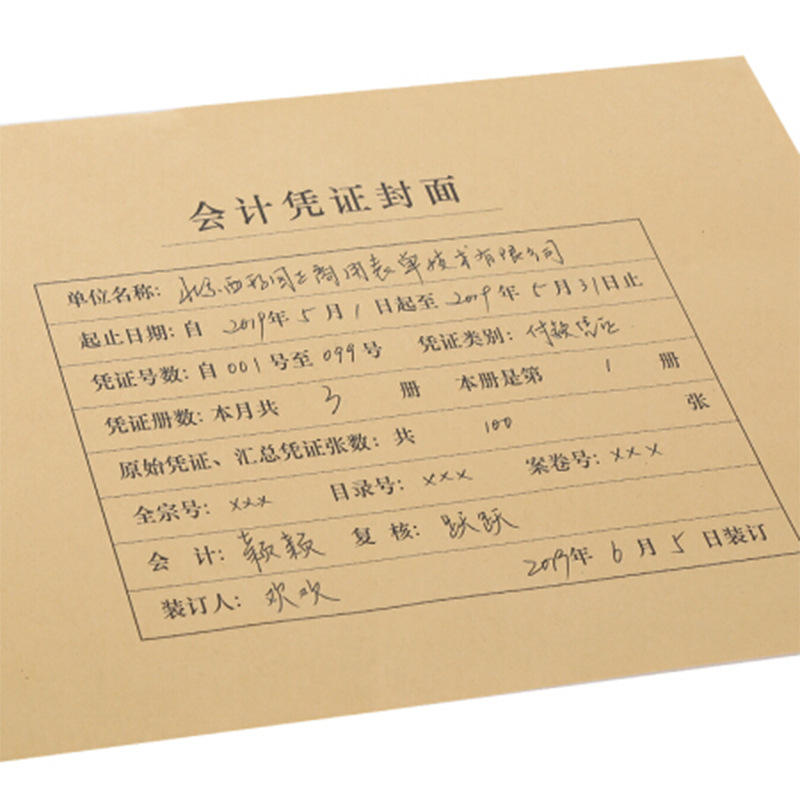 会计凭证封面
单位名称：北京西玛同工商用表单技术有限公司
起止日期：自 2019年 5月 1日起至 2019年 5月 31日止
凭证号数：自001号至099号 凭证类别：付款凭证
凭证册数：本月共 3 册 本册是第 1 册
原始凭证、汇总凭证张数：共 100 张
全宗号：××× 目录号：××× 案卷号：×××
会 计：颖颖 复 核：跃跃
装订人：欢欢 2019年 6月 5日装订